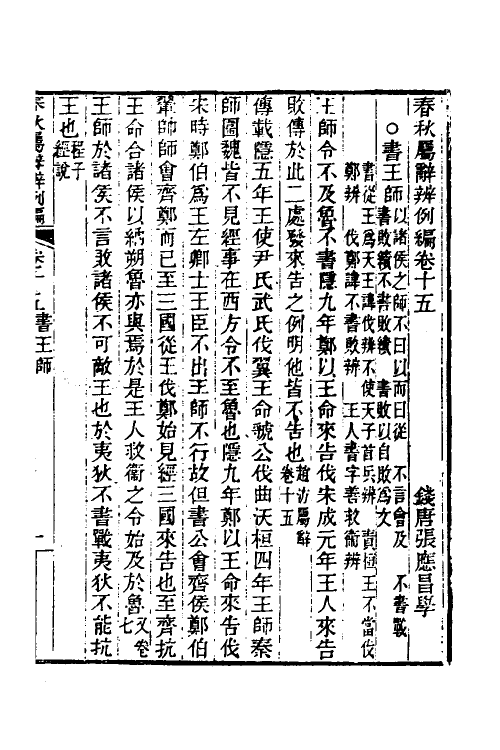 春秋屬辭辨例編卷十五　錢唐張應昌學
○書王師以諸侯之師不曰以而曰從　不言會及　不書戰
書敗績不書敗績　書敗以自敗為文
書從王為天王諱伐辨不使天子首兵辨　責桓王不當伐
鄭辨　伐鄭諱不書敗辨　王人書字善救衛辨
王師令不及魯不書隱九年鄭以王命來告伐宋成元年王人來告
敗傳於此二處發來告之例明他皆不告也趙汸屬辭卷十五
傳載隱五年王使尹氏武氏伐翼王命虢公伐曲沃桓四年王師秦
師圍魏皆不見經事在西方令不至魯也隱九年鄭以王命來告伐
宋時鄭伯為王左卿士王臣不出王師不行故但書公會齊侯鄭伯
鞏帥師會齊鄭而已至三國從王伐鄭始見經三國來告也至齊抗
王命合諸侯以納朔魯亦與焉於是王人救衛之令始及於魯又卷七
王師於諸侯不言敗諸侯不可敵王也於夷狄不書戰夷狄不能抗
王也程子經說
春秋屬辭辨例編　卷十五　書王師　一